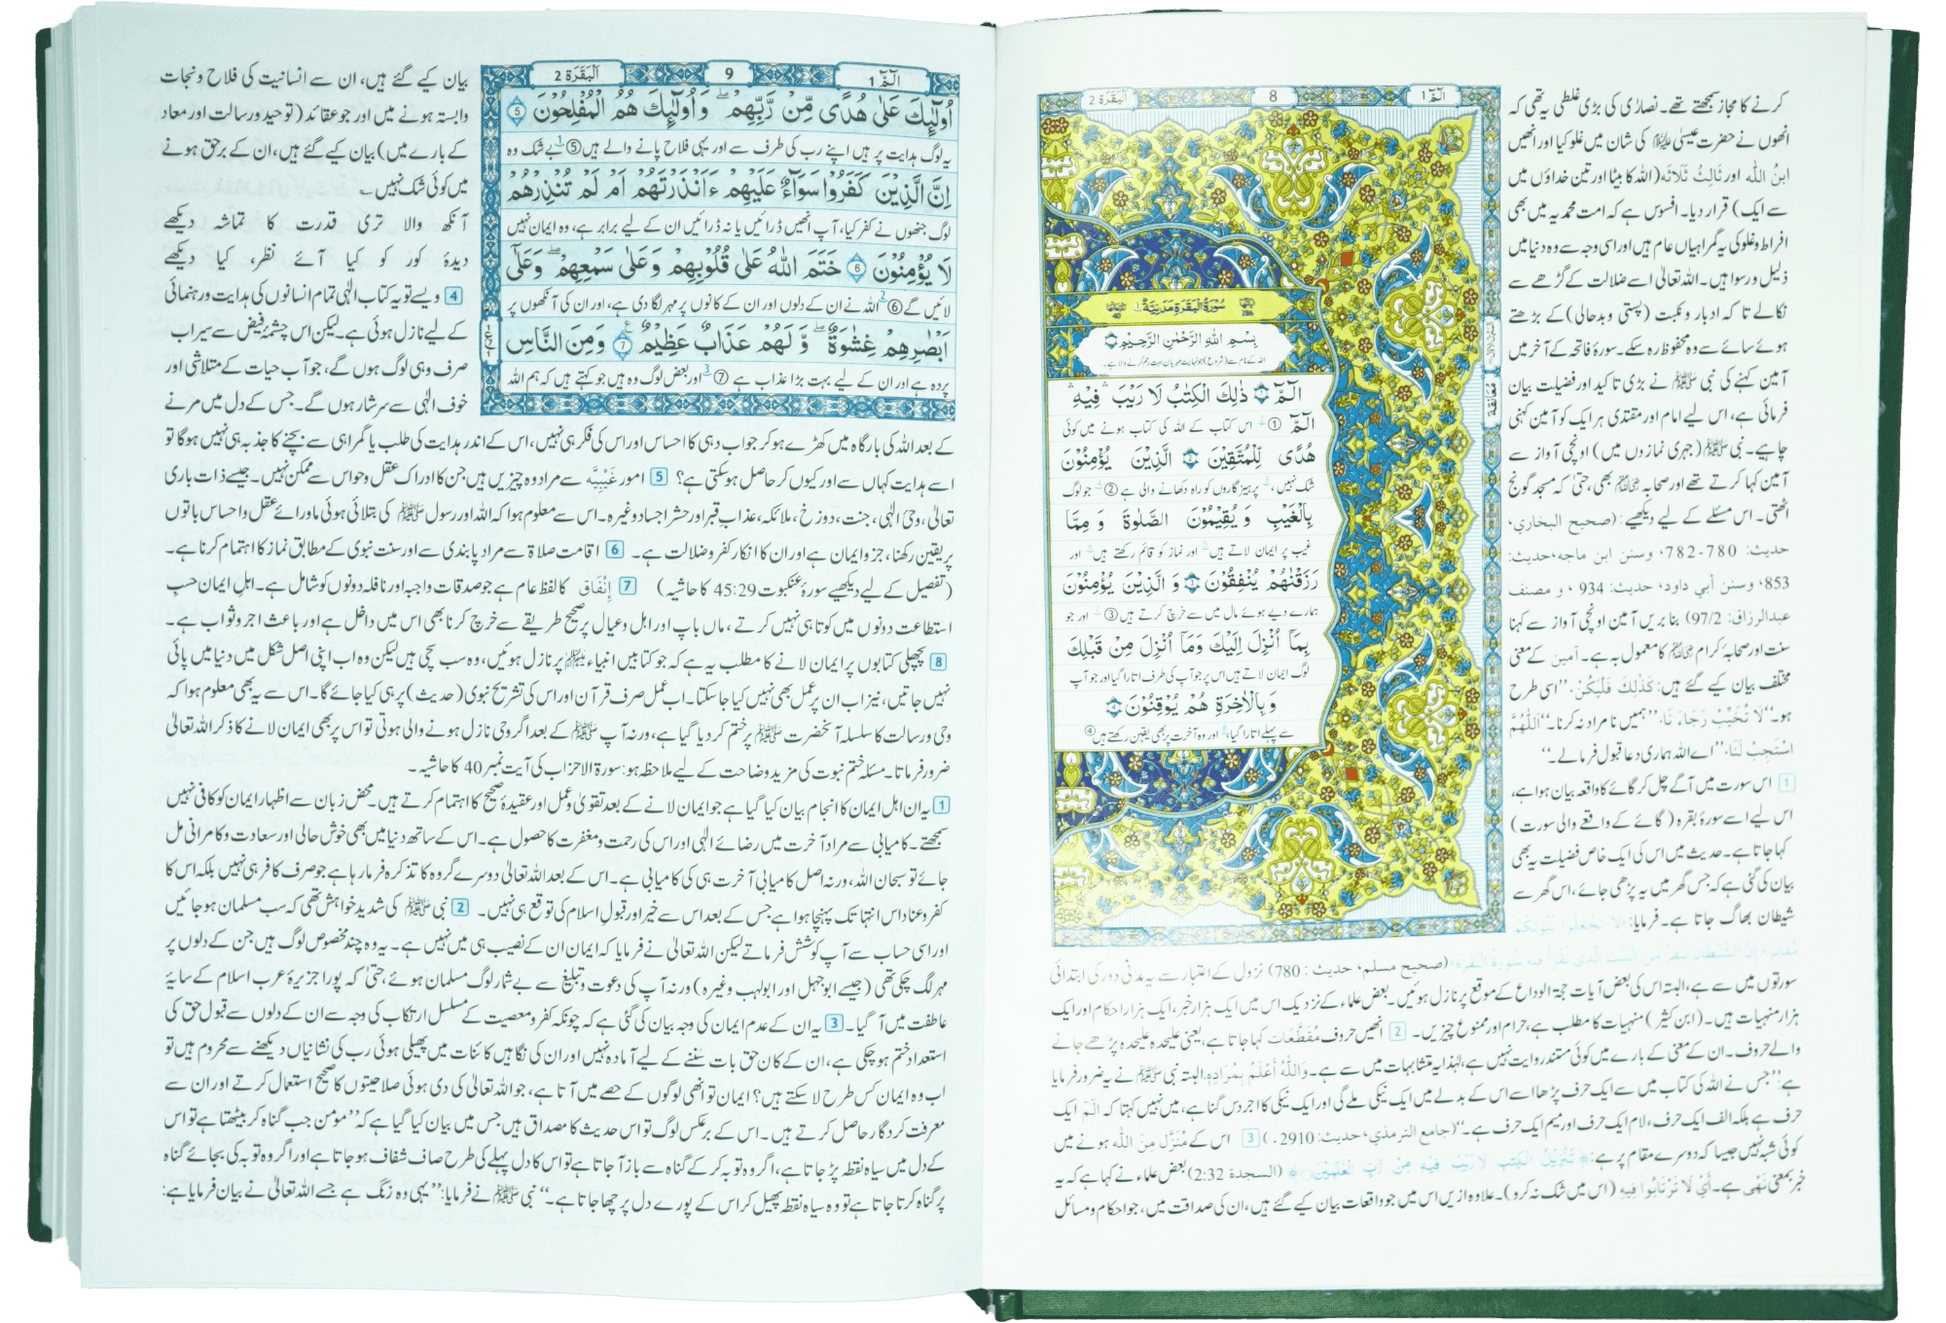 الٓمّٓ 1
8
اَلْبَقَرَة 2
کرنے کا مجاز سمجھتے تھے۔ نصاریٰ کی بڑی غلطی یہ تھی کہ
انھوں نے حضرت عیسیٰ ﷤ کی شان میں غلو کیا اور انھیں
ابنُ اللّٰه اور ثَالِثُ ثَلَاثَه (اللہ کا بیٹا اور تین خداؤں میں
سے ایک) قرار دیا۔ افسوس ہے کہ امت محمدیہ میں بھی
افراط و غلو کی یہ گمراہیاں عام ہیں اور اسی وجہ سے وہ دنیا میں
ذلیل و رسوا ہیں۔ اللہ تعالیٰ اسے ضلالت کے گڑھے سے
نکالے تاکہ ادبار و نکبت (پستی و بدحالی) کے بڑھتے
ہوئے سائے سے وہ محفوظ رہ سکے۔ سورۂ فاتحہ کے آخر میں
آمین کہنے کی نبی ﷺ نے بڑی تاکید اور فضیلت بیان
فرمائی ہے، اس لیے امام اور مقتدی ہر ایک کو آمین کہنی
چاہیے۔ نبی ﷺ (جہری نمازوں میں) اونچی آواز سے
آمین کہا کرتے تھے اور صحابہ بھی، حتیٰ کہ مسجد گونج
اٹھتی۔ اس مسئلے کے لیے دیکھیے: (صحيح البخاري،
حديث: 780-782، وسنن ابن ماجه، حديث:
853، وسنن أبي داود، حديث: 934 ، و مصنف
عبدالرزاق: 97/2) بنا بریں آمین اونچی آواز سے کہنا
سنت اور صحابۂ کرام کا معمول بہ ہے۔ آمین کے معنی
مختلف بیان کیے گئے ہیں: كَذٰلِكَ فَلْيَكُنْ. ”اسی طرح
ہو۔“ لَا تُخَيِّبْ رَجَاءَ نَا. ”ہمیں نامراد نہ کرنا۔“ اَللّٰهُمَّ
اسْتَجِبْ لَنَا. ”اے اللہ ہماری دعا قبول فرما لے۔“
1 اس سورت میں آگے چل کر گائے کا واقعہ بیان ہوا ہے،
اس لیے اسے سورۂ بقرہ (گائے کے واقعے والی سورت)
کہا جاتا ہے۔ حدیث میں اس کی ایک خاص فضیلت یہ بھی
بیان کی گئی ہے کہ جس گھر میں یہ پڑھی جائے، اس گھر سے
شیطان بھاگ جاتا ہے۔ فرمایا: لَا تَجْعَلُوا بُيُوتَكُمْ
سُوْرَةُ الْبَقَرَةِ مَدَنِيَّةٌ
بِسْمِ اللهِ الرَّحْمٰنِ الرَّحِيْمِ
اللہ کے نام سے (شروع) جو نہایت مہربان بہت رحم کرنے والا ہے۔
الٓمّٓ ۝ ذٰلِكَ الْكِتٰبُ لَا رَيْبَ ۛ فِيْهِ ۛ
الٓمّٓ ① اس کتاب کے اللہ کی کتاب ہونے میں کوئی
هُدًى لِّلْمُتَّقِيْنَ ۝ الَّذِيْنَ يُؤْمِنُوْنَ
شک نہیں، پرہیزگاروں کو راہ دکھانے والی ہے ② جو لوگ
بِالْغَيْبِ وَ يُقِيْمُوْنَ الصَّلٰوةَ وَ مِمَّا
غیب پر ایمان لاتے ہیں اور نماز کو قائم رکھتے ہیں اور
رَزَقْنٰهُمْ يُنْفِقُوْنَ ۝ وَ الَّذِيْنَ يُؤْمِنُوْنَ
ہمارے دیے ہوئے مال میں سے خرچ کرتے ہیں ③ اور جو
بِمَاۤ اُنْزِلَ اِلَيْكَ وَمَاۤ اُنْزِلَ مِنْ قَبْلِكَ
لوگ ایمان لاتے ہیں اس پر جو آپ کی طرف اتارا گیا اور جو آپ
وَ بِالْاٰخِرَةِ هُمْ يُوْقِنُوْنَ ۝
سے پہلے اتارا گیا، اور وہ آخرت پر بھی یقین رکھتے ہیں ④
(صحيح مسلم، حديث: 780) نزول کے اعتبار سے یہ مدنی دور کی ابتدائی
سورتوں میں سے ہے، البتہ اس کی بعض آیات حجۃ الوداع کے موقع پر نازل ہوئیں۔ بعض علماء کے نزدیک اس میں ایک ہزار خبر، ایک ہزار احکام اور ایک
ہزار منہیات ہیں۔ (ابن کثیر) منہیات کا مطلب ہے، حرام اور ممنوع چیزیں۔ 2 انھیں حروف مُقَطَّعَات کہا جاتا ہے، یعنی علیحدہ علیحدہ پڑھے جانے
والے حروف۔ ان کے معنی کے بارے میں کوئی مستند روایت نہیں ہے، لہٰذا یہ متشابہات میں سے ہے۔ وَاللّٰهُ أَعْلَمُ بِمُرَادِهِ. البتہ نبی ﷺ نے یہ ضرور فرمایا
ہے: ”جس نے اللہ کی کتاب میں سے ایک حرف پڑھا اسے اس کے بدلے میں ایک نیکی ملے گی اور ایک نیکی کا اجر دس گنا ہے، میں نہیں کہتا کہ الٓمّٓ ایک
حرف ہے بلکہ الف ایک حرف، لام ایک حرف اور میم ایک حرف ہے۔“ (جامع الترمذي، حديث: 2910.) 3 اس کے مُنَزَّل مِنَ اللّٰه ہونے میں
کوئی شبہ نہیں جیسا کہ دوسرے مقام پر ہے: ﴿تَنْزِيْلُ الْكِتٰبِ لَا رَيْبَ فِيْهِ مِنْ رَّبِّ الْعٰلَمِيْنَ﴾ (السجدة 2:32) بعض علماء نے کہا ہے کہ یہ
خبر بمعنی نَهْی ہے۔ أَيْ لَا تَرْتَابُوا فِيهِ (اس میں شک نہ کرو)۔ علاوہ ازیں اس میں جو واقعات بیان کیے گئے ہیں، ان کی صداقت میں، جو احکام و مسائل
الٓمّٓ 1
9
اَلْبَقَرَة 2
اُولٰٓئِكَ عَلٰى هُدًى مِّنْ رَّبِّهِمْ ۖ وَ اُولٰٓئِكَ هُمُ الْمُفْلِحُوْنَ 5
یہ لوگ ہدایت پر ہیں اپنے رب کی طرف سے اور یہی فلاح پانے والے ہیں ⑤ بے شک وہ
اِنَّ الَّذِيْنَ كَفَرُوْا سَوَآءٌ عَلَيْهِمْ ءَاَنْذَرْتَهُمْ اَمْ لَمْ تُنْذِرْهُمْ
لوگ جنھوں نے کفر کیا، آپ انھیں ڈرائیں یا نہ ڈرائیں ان کے لیے برابر ہے، وہ ایمان نہیں
لَا يُؤْمِنُوْنَ 6 خَتَمَ اللّٰهُ عَلٰى قُلُوْبِهِمْ وَعَلٰى سَمْعِهِمْ ۖ وَعَلٰۤى
لائیں گے ⑥ اللہ نے ان کے دلوں اور ان کے کانوں پر مہر لگا دی ہے، اور ان کی آنکھوں پر
اَبْصٰرِهِمْ غِشٰوَةٌ ۖ وَّ لَهُمْ عَذَابٌ عَظِيْمٌ 7 وَمِنَ النَّاسِ
پردہ ہے اور ان کے لیے بہت بڑا عذاب ہے ⑦ اور بعض لوگ وہ ہیں جو کہتے ہیں کہ ہم اللہ
بیان کیے گئے ہیں، ان سے انسانیت کی فلاح و نجات
وابستہ ہونے میں اور جو عقائد (توحید و رسالت اور معاد
کے بارے میں) بیان کیے گئے ہیں، ان کے برحق ہونے
میں کوئی شک نہیں۔
آنکھ والا تری قدرت کا تماشہ دیکھے
دیدۂ کور کو کیا آئے نظر، کیا دیکھے
4 ویسے تو یہ کتاب الٰہی تمام انسانوں کی ہدایت و رہنمائی
کے لیے نازل ہوئی ہے۔ لیکن اس چشمۂ فیض سے سیراب
صرف وہی لوگ ہوں گے، جو آب حیات کے متلاشی اور
خوف الٰہی سے سرشار ہوں گے۔ جس کے دل میں مرنے
کے بعد اللہ کی بارگاہ میں کھڑے ہو کر جواب دہی کا احساس اور اس کی فکر ہی نہیں، اس کے اندر ہدایت کی طلب یا گمراہی سے بچنے کا جذبہ ہی نہیں ہوگا تو
اسے ہدایت کہاں سے اور کیوں کر حاصل ہو سکتی ہے؟ 5 امور غَيْبِيَّه سے مراد وہ چیزیں ہیں جن کا ادراک عقل و حواس سے ممکن نہیں۔ جیسے ذات باری
تعالیٰ، وحیٔ الٰہی، جنت، دوزخ، ملائکہ، عذاب قبر اور حشر اجساد وغیرہ۔ اس سے معلوم ہوا کہ اللہ اور رسول ﷺ کی بتلائی ہوئی ماورائے عقل و احساس باتوں
پر یقین رکھنا، جزو ایمان ہے اور ان کا انکار کفر و ضلالت ہے۔ 6 اقامت صلاۃ سے مراد پابندی سے اور سنت نبوی کے مطابق نماز کا اہتمام کرنا ہے۔
(تفصیل کے لیے دیکھیے سورۂ عنکبوت 45:29 کا حاشیہ) 7 إِنْفَاق کا لفظ عام ہے جو صدقات واجبہ اور نافلہ دونوں کو شامل ہے۔ اہل ایمان حسبِ
استطاعت دونوں میں کوتاہی نہیں کرتے، ماں باپ اور اہل و عیال پر صحیح طریقے سے خرچ کرنا بھی اس میں داخل ہے اور باعث اجر و ثواب ہے۔
8 پچھلی کتابوں پر ایمان لانے کا مطلب یہ ہے کہ جو کتابیں انبیاء پر نازل ہوئیں، وہ سب سچی ہیں لیکن وہ اب اپنی اصل شکل میں دنیا میں پائی
نہیں جاتیں، نیز اب ان پر عمل بھی نہیں کیا جا سکتا۔ اب عمل صرف قرآن اور اس کی تشریح نبوی (حدیث) پر ہی کیا جائے گا۔ اس سے یہ بھی معلوم ہوا کہ
وحی و رسالت کا سلسلہ آنحضرت ﷺ پر ختم کر دیا گیا ہے، ورنہ آپ ﷺ کے بعد اگر وحی نازل ہونے والی ہوتی تو اس پر بھی ایمان لانے کا ذکر اللہ تعالیٰ
ضرور فرماتا۔ مسئلہ ختم نبوت کی مزید وضاحت کے لیے ملاحظہ ہو: سورۃ الاحزاب کی آیت نمبر 40 کا حاشیہ۔
1 یہ ان اہل ایمان کا انجام بیان کیا گیا ہے جو ایمان لانے کے بعد تقویٰ و عمل اور عقیدۂ صحیح کا اہتمام کرتے ہیں۔ محض زبان سے اظہار ایمان کو کافی نہیں
سمجھتے۔ کامیابی سے مراد آخرت میں رضائے الٰہی اور اس کی رحمت و مغفرت کا حصول ہے۔ اس کے ساتھ دنیا میں بھی خوش حالی اور سعادت و کامرانی مل
جائے تو سبحان اللہ، ورنہ اصل کامیابی آخرت ہی کی کامیابی ہے۔ اس کے بعد اللہ تعالیٰ دوسرے گروہ کا تذکرہ فرما رہا ہے جو صرف کافر ہی نہیں بلکہ اس کا
کفر و عناد اس انتہا تک پہنچا ہوا ہے جس کے بعد اس سے خیر اور قبول اسلام کی توقع ہی نہیں۔ 2 نبی ﷺ کی شدید خواہش تھی کہ سب مسلمان ہو جائیں
اور اسی حساب سے آپ کوشش فرماتے لیکن اللہ تعالیٰ نے فرمایا کہ ایمان ان کے نصیب ہی میں نہیں ہے۔ یہ وہ چند مخصوص لوگ ہیں جن کے دلوں پر
مہر لگ چکی تھی (جیسے ابوجہل اور ابولہب وغیرہ) ورنہ آپ کی دعوت و تبلیغ سے بے شمار لوگ مسلمان ہوئے، حتیٰ کہ پورا جزیرۂ عرب اسلام کے سایۂ
عاطفت میں آ گیا۔ 3 یہ ان کے عدم ایمان کی وجہ بیان کی گئی ہے کہ چونکہ کفر و معصیت کے مسلسل ارتکاب کی وجہ سے ان کے دلوں سے قبول حق کی
استعداد ختم ہو چکی ہے، ان کے کان حق بات سننے کے لیے آمادہ نہیں اور ان کی نگاہیں کائنات میں پھیلی ہوئی رب کی نشانیاں دیکھنے سے محروم ہیں تو
اب وہ ایمان کس طرح لا سکتے ہیں؟ ایمان تو انھی لوگوں کے حصے میں آتا ہے، جو اللہ تعالیٰ کی دی ہوئی صلاحیتوں کا صحیح استعمال کرتے اور ان سے
معرفت کردگار حاصل کرتے ہیں۔ اس کے برعکس لوگ تو اس حدیث کا مصداق ہیں جس میں بیان کیا گیا ہے کہ ”مومن جب گناہ کر بیٹھتا ہے تو اس
کے دل میں سیاہ نقطہ پڑ جاتا ہے، اگر وہ توبہ کر کے گناہ سے باز آ جاتا ہے تو اس کا دل پہلے کی طرح صاف شفاف ہو جاتا ہے اور اگر وہ توبہ کی بجائے گناہ
پر گناہ کرتا جاتا ہے تو وہ سیاہ نقطہ پھیل کر اس کے پورے دل پر چھا جاتا ہے۔“ نبی ﷺ نے فرمایا: ”یہی وہ زنگ ہے جسے اللہ تعالیٰ نے بیان فرمایا ہے: